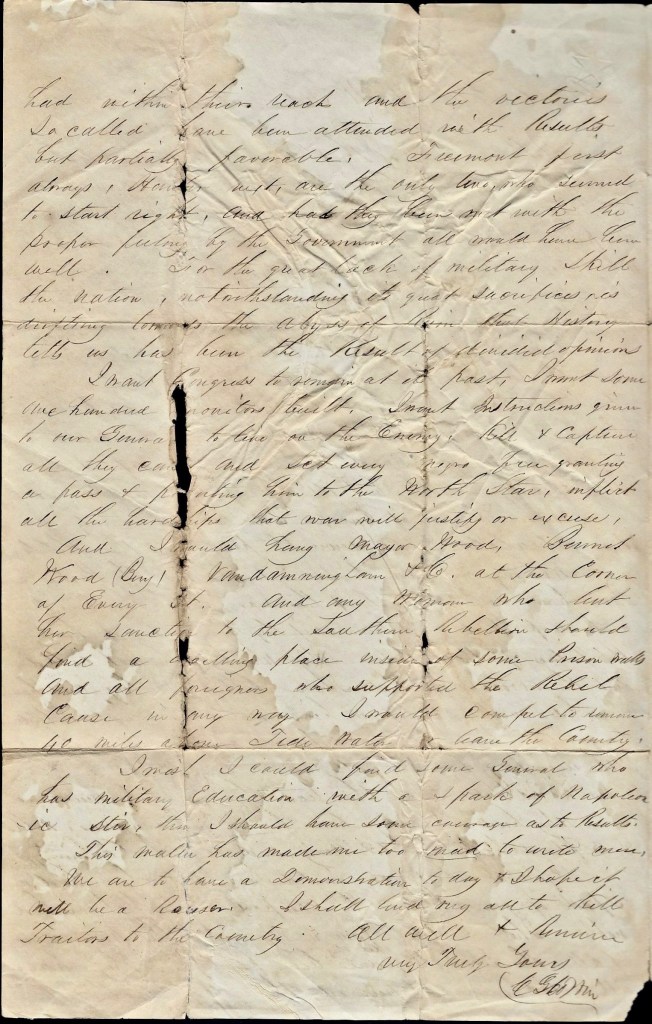 had within theirs reach and the victories
So called have been attended with Results
but partially favorable. Freemont first
always, next, are the only two, who seemed
to start right, and had they been met with the
proper feeling by the Government all would have been
well. For the great lack of military Skill
the nation, notwithstanding its great sacrifices is
drifting towards the Abyss of Ruin that History
tells us has been the Result of divided opinions
I want Congress to remain at its post, I want some
one hundred monitors built. I want Instructions given
to our Generals to live on the Enemy. Kill & Capture
all they can and set every negro free granting
a pass & pointing him to the North Star, inflict
all the hardships that war will justify or excuse,
And I would hang Mayor Wood,
Wood (Benj) &C. at the Corner
of Every St. And any Woman who lent
her sanction to the Southern Rebellion should
find a dwelling place inside of some Prison walls
And all foreigners who supported the Rebel
Cause in any way I would compel to remove
40 miles above Tide Water or leave the Country.
I wish I could find some General who
has military Education with a spark of Napoleon
ic Star, then I should have some courage as to Results.
This matter has made me too mad to write more,
We are to have a Demonstration to day & I hope it
will be a I shall lend my all to kill
Traitors to the Country. All well &
Very Truly Yours